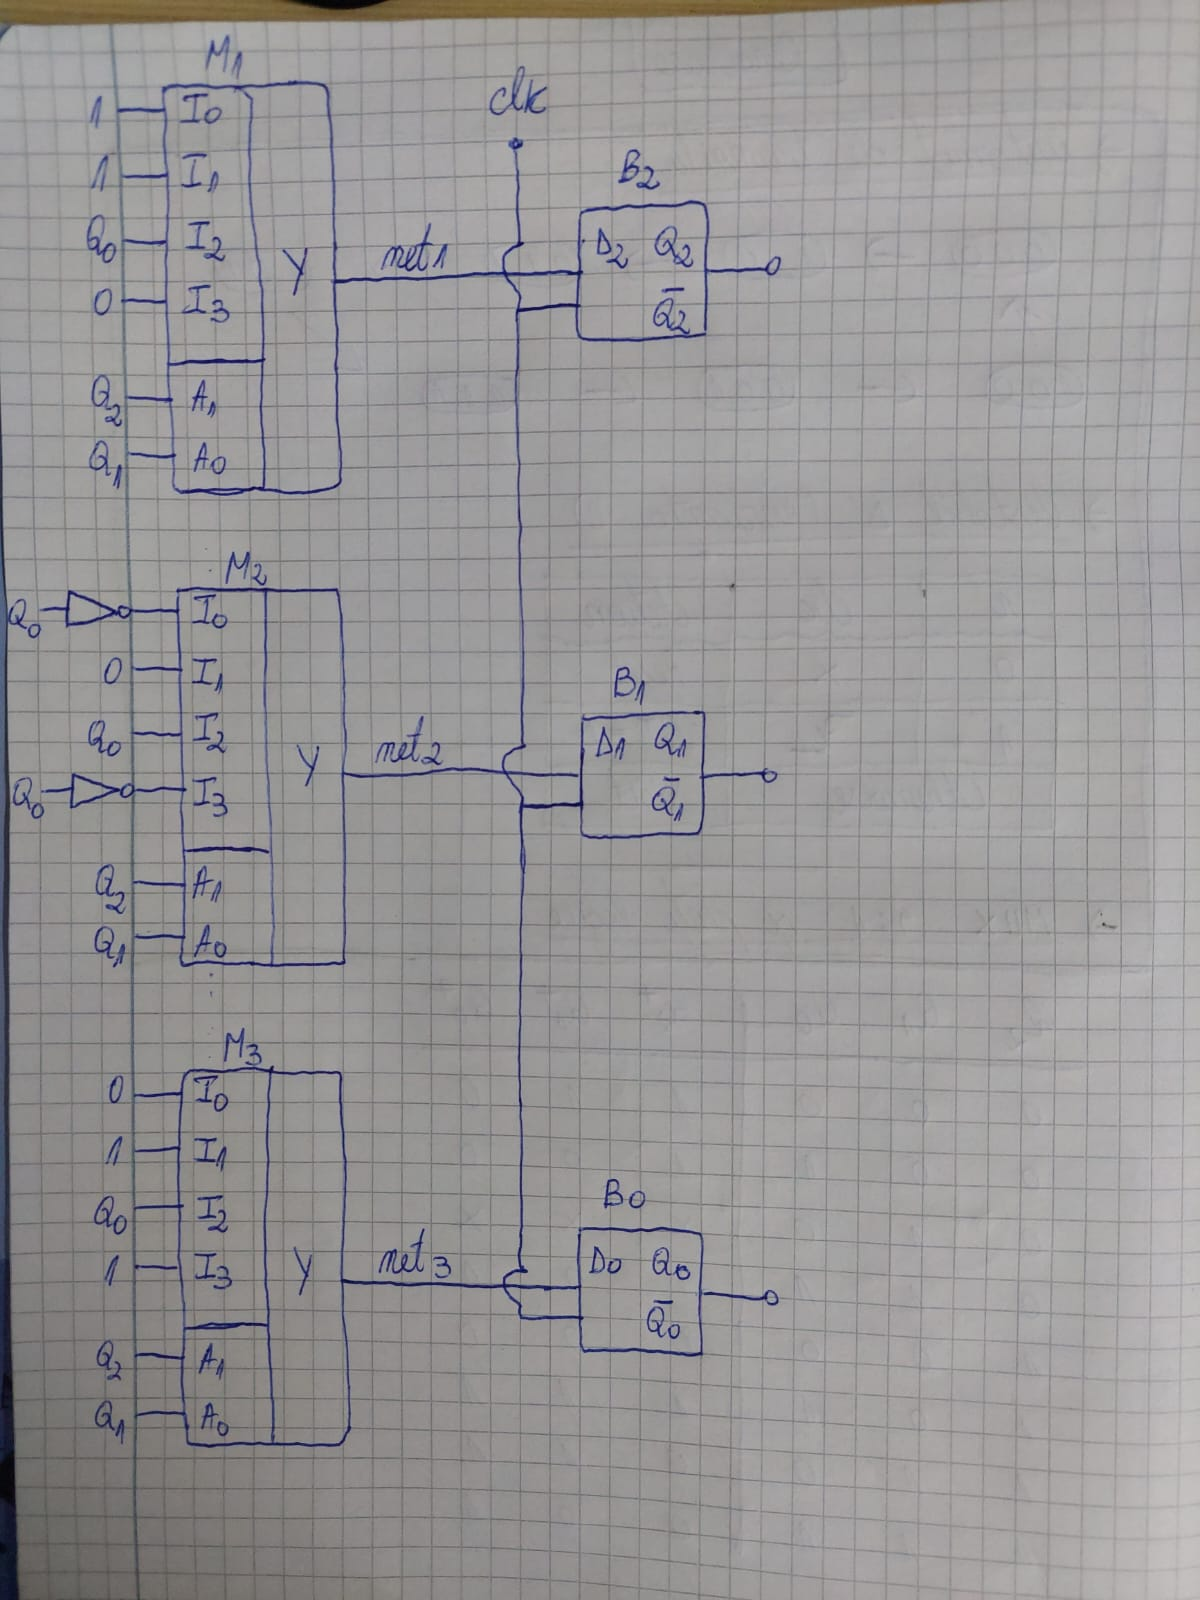 M1
1 I0
1 I1
Q0 I2
0 I3
Y
Q2 A1
Q1 A0
net1
clk
B2
D2 Q2
Q̅2
M2
Q0 I0
0 I1
Q0 I2
Q0 I3
Y
Q2 A1
Q1 A0
net2
B1
D1 Q1
Q̅1
M3
0 I0
1 I1
Q0 I2
1 I3
Y
Q2 A1
Q1 A0
net3
B0
D0 Q0
Q̅0